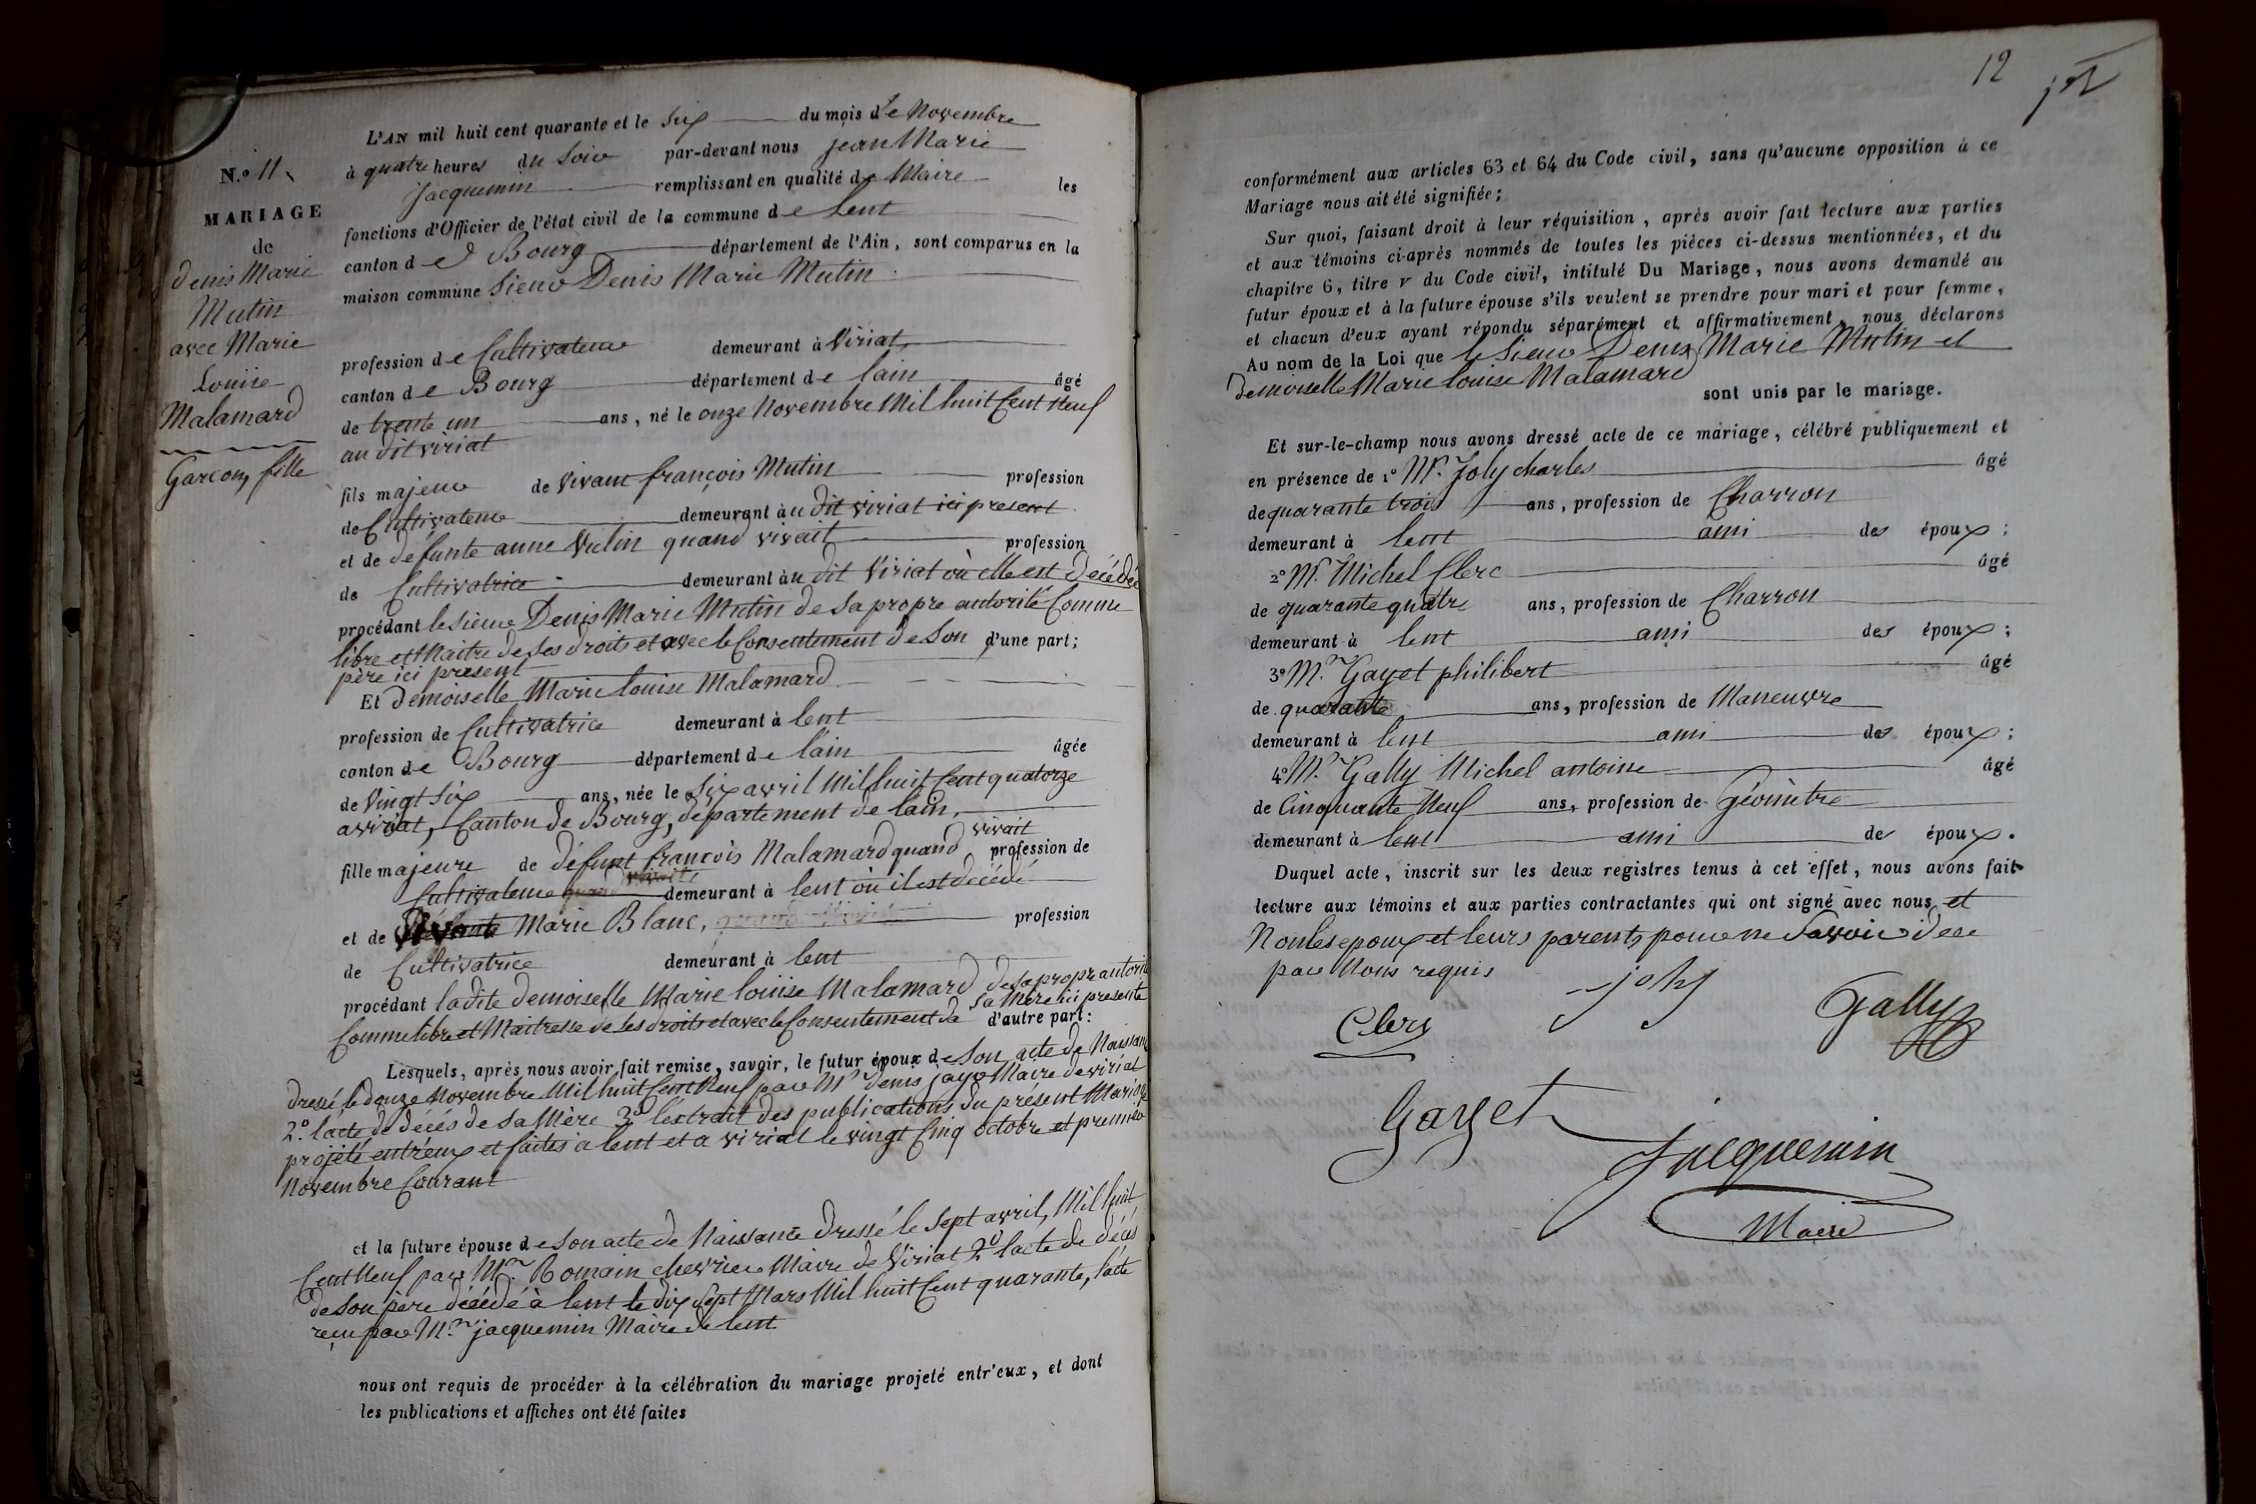 N.º 11
MARIAGE
de
denis Marie
Mutin
avec Marie
Louise
Malamard
Garçon, fille
L'AN mil huit cent quarante et le Six du mois de Novembre
à quatre heures du Soir par-devant nous jean Marie
Jacquemin remplissant en qualité de Maire les
fonctions d'Officier de l'état civil de la commune de Lent
canton de Bourg département de l'Ain, sont comparus en la
maison commune Sieur Denis Marie Mutin
profession de Cultivateur demeurant à Viriat
canton de Bourg département de lain âgé
de trente un ans, né le onze Novembre Mil huit Cent Neuf
au dit viriat
fils majeur de vivant françois Mutin profession
de Cultivateur demeurant àu dit viriat ici present
et de défunte anne Vutin quand vivait profession
de Cultivatrice demeurant àu dit Viriat où elle est décédée
procédant le sieur Denis Marie Mutin de sa propre autorité Comme
libre et Maitre de ses droits et avec le Consentement de Son d'une part;
père ici present
Et demoiselle Marie louise Malamard
profession de Cultivatrice demeurant à lent
canton de Bourg département de lain âgée
de vingt six ans, née le Six avril Mil huit Cent quatorze
a viriat, Canton de Bourg, département de lain,
fille majeure de défunt françois Malamard quand vivait profession de
Cultivateur demeurant à lent où il est décédé
et de Marie Blanc, profession
de Cultivatrice demeurant à lent
procédant ladite demoiselle Marie louise Malamard de sa propre autorité
Comme libre et Maitresse de ses droits et avec le Consentement de sa Mère ici presente d'autre part:
Lesquels, après nous avoir fait remise, savoir, le futur époux de Son acte de Naissance
dressé le douze Novembre Mil huit Cent Neuf par Mr denis jayr Maire de viriat
2.º l'acte de décès de sa Mère 3º l'extrait des publications du présent Mariage
projeté entr'eux et faites a lent et a viriat le vingt Cinq octobre et premier
Novembre Courant
et la future épouse de son acte de Naissance dressé le Sept avril, Mil huit
Cent Neuf par Mr. Romain chevrier Maire de Viriat 2º l'acte de décès
de son père décédé à lent le dix Sept Mars Mil huit Cent quarante, l'acte
reçu par Mr. jacquemin Maire de lent
nous ont requis de procéder à la célébration du mariage projeté entr'eux, et dont
les publications et affiches ont été faites
12
conformément aux articles 63 et 64 du Code civil, sans qu'aucune opposition à ce
Mariage nous ait été signifiée;
Sur quoi, faisant droit à leur réquisition, après avoir fait lecture aux parties
et aux témoins ci-après nommés de toutes les pièces ci-dessus mentionnées, et du
chapitre 6, titre v du Code civil, intitulé Du Mariage, nous avons demandé au
futur époux et à la future épouse s'ils veulent se prendre pour mari et pour femme,
et chacun d'eux ayant répondu séparément et affirmativement, nous déclarons
Au nom de la Loi que le Sieur Denis Marie Mutin et
Demoiselle Marie louise Malamard
sont unis par le mariage.
Et sur-le-champ nous avons dressé acte de ce mariage, célébré publiquement et
en présence de 1º Mr. Joly charles âgé
de quarante trois ans, profession de Charron
demeurant à lent ami des époux;
2º Mr. Michel Clerc âgé
de quarante quatre ans, profession de Charron
demeurant à lent ami des époux;
3º Mr. Gayet philibert âgé
de quarante ans, profession de Maneuvre
demeurant à lent ami des époux;
4º Mr. Gally Michel antoine âgé
de Cinquante Neuf ans, profession de Géomètre
demeurant à lent ami de époux.
Duquel acte, inscrit sur les deux registres tenus à cet effet, nous avons fait
lecture aux témoins et aux parties contractantes qui ont signé avec nous, et
Non les epoux et leurs parents pour ne Savoir de ce
par Nous requis
joly
Clerc
Gally
Gayet
Jacquemin
Maire